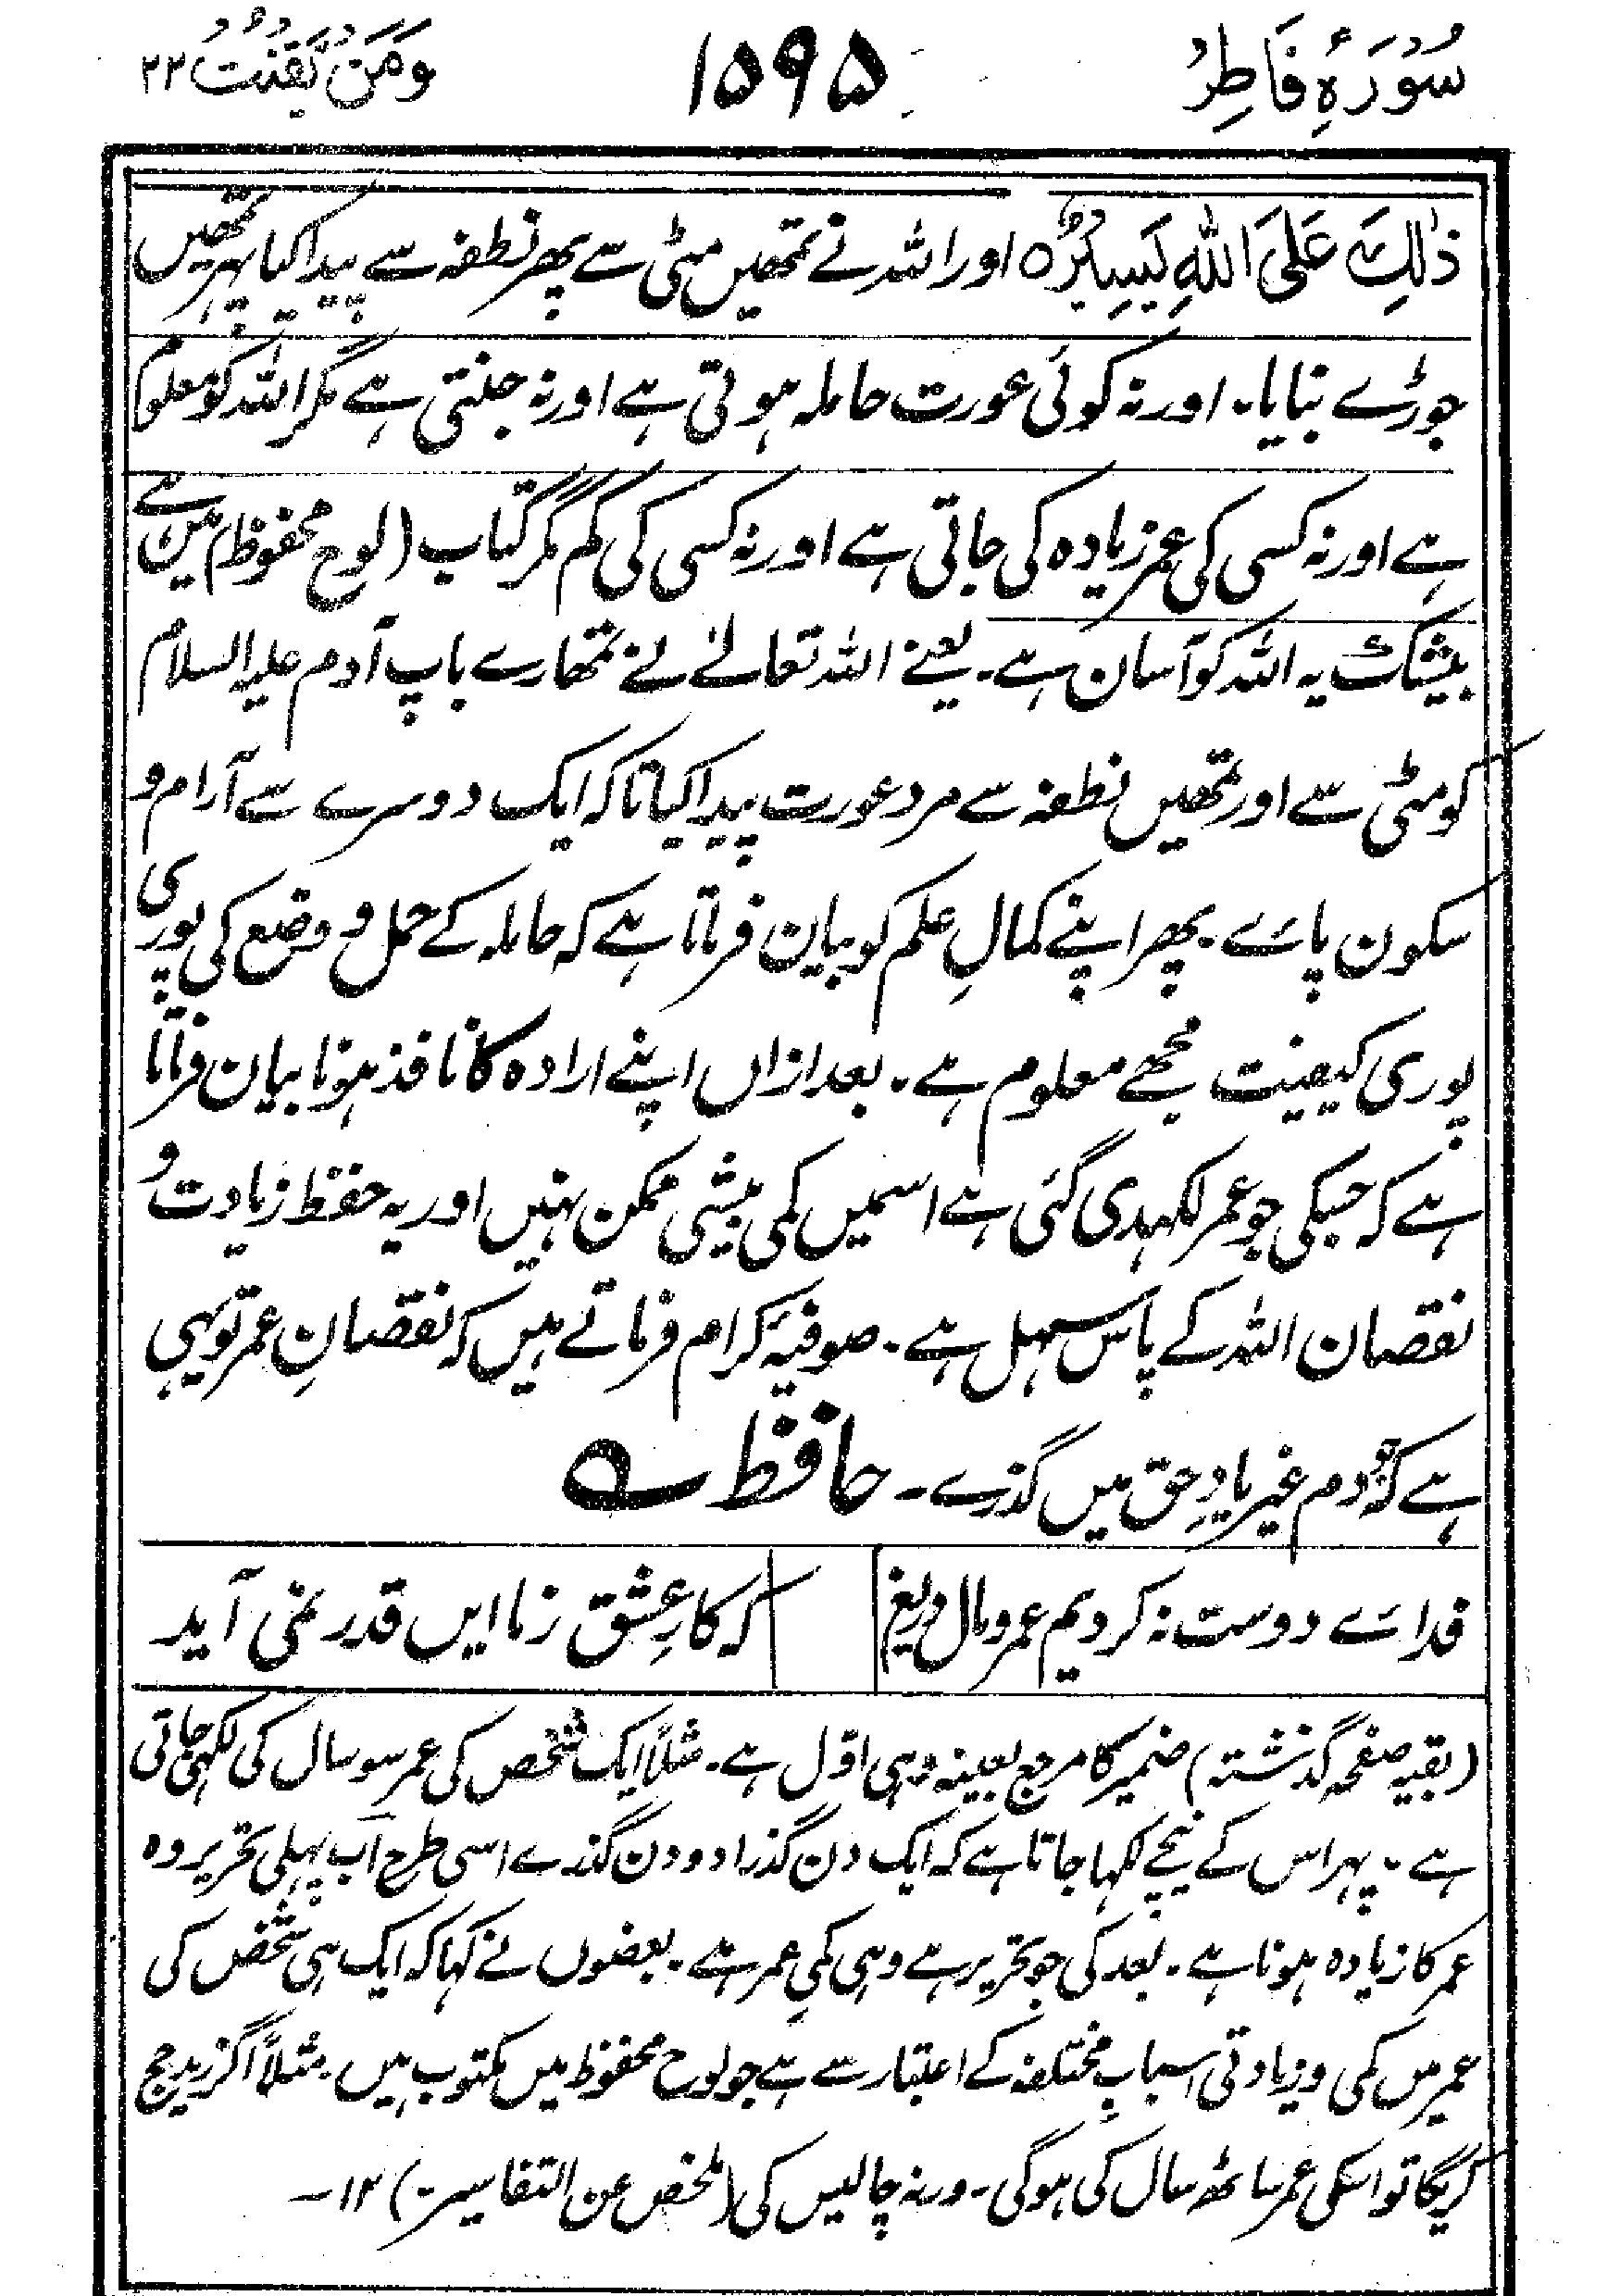 سُوْرَۂِ فَاطِرُ
۱۵۹۵
وَمَنْ یَّقْنُتْ ۲۲
ذٰلِكَ عَلَى اللّٰهِ يَسِيْرٌ ہ اور اللہ نے تمھیں مٹی سے پھر نطفہ سے پیدا کیا پہر تمھیں
جوڑے بنایا۔ اور نہ کوئی عورت حاملہ ہوتی ہے اور نہ جنتی ہے مگر اللہ کو معلوم
ہے اور نہ کسی کی عمر زیادہ کی جاتی ہے اور نہ کسی کی کم مگر کتاب (لوح محفوظ) میں ہے
بیشک یہ اللہ کو آسان ہے۔ یعنے اللہ تعالےٰ نے تمھارے باپ آدم علیہ السلام
کو مٹی سے اور تمھیں نطفہ سے مرد عورت پیدا کیا تاکہ ایک دوسرے سے آرام و
سکون پائے۔ پھر اپنے کمالِ علم کو بیان فرماتا ہے کہ حاملہ کے حمل و وضع کی پوری
پوری کیفیت مجھے معلوم ہے۔ بعد ازاں اپنے ارادہ کا نافذ ہونا بیان فرماتا
ہے کہ جسکی جو عمر لکہدی گئی ہے اسمیں کمی بیشی ممکن نہیں اور یہ حفظ زیادت و
نقصان اللہ کے پاس سہل ہے۔ صوفیۂ کرام فرماتے ہیں کہ نقصانِ عمر تو یہی
ہے کہ جو دم غیر یادِ حق میں گذرے۔ حافظ ؎
فدائے دوست نہ کردیم عمر و مال دریغ
کہ کارِ عشق زما ایں قدر نمی آید
(بقیہ صفحہ گذشتہ) ضمیر کا مرجع بعینہ وہی اوّل ہے۔ مثلاً ایک شخص کی عمر سو سال کی لکہی جاتی
ہے۔ پہر اس کے نیچے لکہا جاتا ہے کہ ایک دن گذرا دو دن گذرے اسی طرح اب پہلی تحریر وہ
عمر کا زیادہ ہونا ہے۔ بعد کی جو تحریر ہے وہی کمیِ عمر ہے۔ بعضوں نے کہا کہ ایک ہی شخص کی
عمر میں کمی و زیادتی اسبابِ مختلفہ کے اعتبار سے ہے جو لوح محفوظ میں مکتوب ہیں۔ مثلاً اگر زید حج
کریگا تو اسکی عمر ساٹھ سال کی ہوگی۔ ورنہ چالیس کی (ملخص عن التفاسیر) ۱۲۔